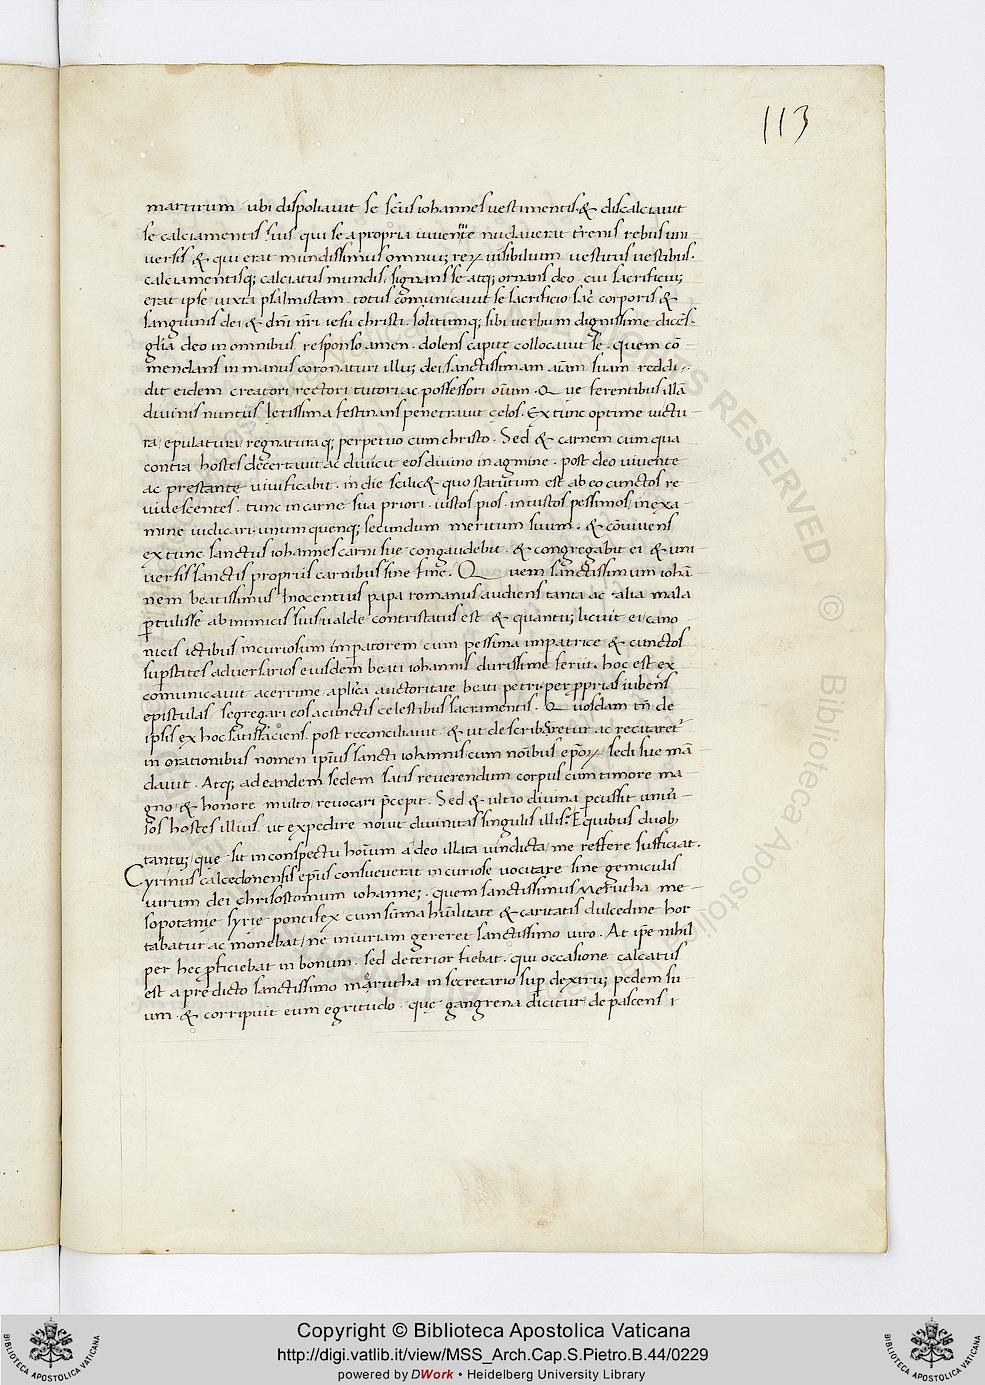 113
martirum. ubi dispoliavit se scūs iohannes vestimentis & discalciavit
se calciamentis suis, qui se a propria iuventute nudaverat trenis rebus uni
versis & qui erat mundissimus omnium rerum visibilium. vestitus vestibus.
calciamentisq; calciatus mundis, signans se atq; ornans deo. cui sacrificium
erat ipse, iuxta psalmistam. totus comunicavit se sacrificio sacri corporis &
sanguinis dei & dn̄i nr̄i iesu christi. solitumq; sibi verbum dignissime dicens.
glīa deo in omnibus responso amen. dolens capite collocavit se. quem cō
mendans in manus coronaturi illius dei, sanctissimam aīam suam reddi
dit eidem creatori, rectori, tutori ac possessori oīum. Que ferentibus illā
divinis nuntiis letissima festinans penetravit celos. Ex tunc optime victu
ra, epulatura, regnaturaq; perpetuo cum christo. Sed & carnem cum qua
contra hostes decertavit ac divicit eos divino in agmine. post deo vivente
ac prestante vivificabit. in die scilic& quo statutum est ab eo cunctos re
vivescentes. tunc in carne sua priori. iustos pios. iniustos pessimos, in exa
mine iudicari. unum quenq; secundum meritum suum. & cōvivens
ex tunc sanctus iohannes carni sue congaudebit. & congregabit ei & uni
versis sanctis propriis carnibus sine fine. Quem sanctissimum iohā
nem beatissimus Inocentius papa romanus audiens tanta ac talia mala
ptulisse ab inimicis suis valde contristatus est & quantum licuit ei, cano
nicis ictibus incuriosum imperatorem cum pessima impatrice & cunctos
supstites adversarios eiusdem beati iohannis durissime feriit. hoc est ex
comunicavit acerrime, aplīca auctoritate beati petri. per pprias iubens
epistulas segregari eos a cunctis celestibus sacramentis. Quosdam tn̄ de
ipsis ex hoc satisfaciens. post reconciliavit. & ut describeretur ac recitaret
in orationibus nomen ipsius sancti iohannis cum noībus epōrum sedi sue mā
davit. Atq; ad eandem sedem satis reverendum corpus cum timore ma
gno & honore multo revocari pcepit. Sed & ultio divina pcussit univer
sos hostes illius. ut expedire novit divinitas singulis illis. E quibus duob;
tantum que sit in conspectu hoīum a deo illata vindicta, me reffere sufficiat.
Cyrinus calcedonensis epūs consueverat incuriose vocitare sine geniculis
virum dei chrisostomum iohannem. quem sanctissimus Merutha me
sopotanie syrie pontifex cum sūma hūilitate & caritatis dulcedine hor
tabatur ac monebat, ne iniuriam gereret sanctissimo viro. At ipse nihil
per hec pficiebat in bonum. sed deterior fiebat. qui occasione calcatus
est a predicto sanctissimo marutha in secretario sup dextrum pedem su
um. & corripuit eum egritudo. que gangrena dicitur depascens i
Copyright © Biblioteca Apostolica Vaticana
http://digi.vatlib.it/view/MSS_Arch.Cap.S.Pietro.B.44/0229
powered by DWork • Heidelberg University Library